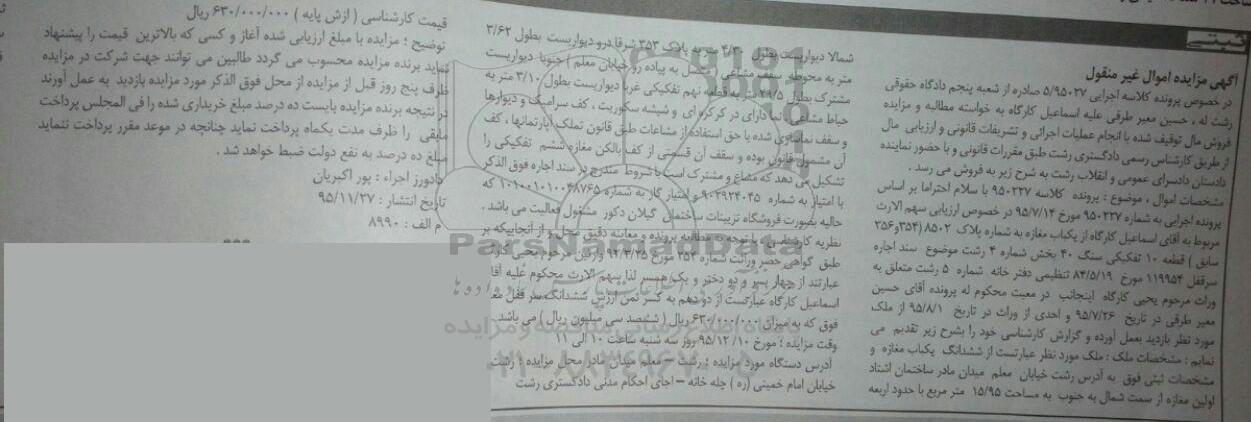 ثبتی
آگهی مزایده اموال غیر منقول
در خصوص پرونده کلاسه اجرایی ۵/۹۵۰۲۷ صادره از شعبه پنجم دادگاه حقوقی
رشت له ، حسین معیر طرقی علیه اسماعیل کارگاه به خواسته مطالبه و مزایده
فروش مال توقیف شده با انجام عملیات اجرائی و تشریفات قانونی و ارزیابی مال
از طریق کارشناس رسمی دادگستری رشت طبق مقررات قانونی و با حضور نماینده
دادستان دادسرای عمومی و انقلاب رشت به شرح زیر به فروش می رسد .
مشخصات اموال ، موضوع : پرونده کلاسه ۹۵۰۲۲۷ با سلام احتراما بر اساس
پرونده اجرایی به شماره ۹۵۰۲۲۷ مورخ ۹۵/۷/۱۴ در خصوص ارزیابی سهم الارث
مربوط به آقای اسماعیل کارگاه از یکباب مغازه به شماره پلاک ۸۵۰۲ (۳۵۴و۳۵۶
سابق ) قطعه ۱۰ تفکیکی سنگ ۴۰ بخش شماره ۴ رشت موضوع سند اجاره
سرقفل ۱۱۹۹۵۴ مورخ ۸۴/۵/۱۹ تنظیمی دفتر خانه شماره ۵ رشت متعلق به
وراث مرحوم یحیی کارگاه اینجانب در معیت محکوم له پرونده آقای حسین
معیر طرقی در تاریخ ۹۵/۷/۲۶ و احدی از وراث در تاریخ ۹۵/۸/۱ از ملک
مورد نظر بازدید بعمل آورده و گزارش کارشناسی خود را بشرح زیر تقدیم می
نمایم : مشخصات ملک : ملک مورد نظر عبارتست از ششدانگ یکباب مغازه و
مشخصات ثبتی فوق به آدرس رشت خیابان معلم میدان مادر ساختمان اشتاد
اولین مغازه از سمت شمال به جنوب به مساحت ۱۵/۹۵ متر مربع با حدود اربعه
شمالا دیواریست بطول ۴/۳۰ متر به پلاک ۳۵۳ شرقا درو دیواریست بطول ۳/۶۲
متر به محوطه سقف مشاعی ( متصل به پیاده رو خیابان معلم ) جنوبا دیواریست
مشترک بطول ۴/۵ متر به قطعه نهم تفکیکی غربا دیواریست بطول ۳/۱۰ متر به
حیاط مشاعی نما دارای در کرکره ای و شیشه سکوریت ، کف سرامیک و دیوارها
و سقف نماسازی شده با حق استفاده از مشاعات طبق قانون تملک آپارتمانها ، کف
آن مشمول قانون بوده و سقف آن قسمتی از کف بالکن مغازه ششم تفکیکی را
تشکیل می دهد که مشاع و مشترک است با شروط مندرج در سند اجاره فوق الذکر
با امتیاز به شماره ۹۰۲۹۲۴۰۴۵ و امتیاز گاز به شماره ۱۰۱۰۰۱۰۱۰۰۴۸۷۶۵ که
حالیه بصورت فروشگاه تزیینات ساختمان گیلان دکور مشغول فعالیت می باشد .
نظریه کارشناسی : با توجه به مطالبه پرونده و معاینه دقیق محل و از آنجاییکه بر
طبق گواهی حصر وراثت شماره ۳۵۳ مورخ ۹۲/۳/۲۵ وارثین مرحوم یحیی کارگاه
عبارتند از چهار پسر و دو دختر و یک همسر لذا سهم الارث محکوم علیه آقا
اسماعیل کارگاه عبارتست از دو دهم به کسر ثمن ارزش ششدانگ سر قفل مغ
فوق که به میزان ۶۳۰/۰۰۰/۰۰۰ ریال ( ششصد سی میلیون ریال ) می باشد .
وقت مزایده : مورخ ۹۵/۱۲/۱۰ روز سه شنبه ساعت ۱۰ الی ۱۱
آدرس دستگاه مورد مزایده : رشت – معلم میدان مادر محل مزایده : رشت
خیابان امام خمینی (ره ) چله خانه – اجای احکام مدنی دادگستری رشت
قیمت کارشناسی ( ازش پایه ) ۶۳۰/۰۰۰/۰۰۰ ریال
توضیح : مزایده با مبلغ ارزیابی شده آغاز و کسی که بالاترین قیمت را پیشنهاد
نماید برنده مزایده محسوب می گردد طالبین می توانند جهت شرکت در مزایده
ظرف پنج روز قبل از مزایده از محل فوق الذکر مورد مزایده بازدید به عمل آورند
در نتیجه برنده مزایده بایست ده درصد مبلغ خریداری شده را فی المجلس پرداخت
مابقی را ظرف مدت یکماه پرداخت نماید چنانچه در موعد مقرر پرداخت ننماید
مبلغ ده درصد به نفع دولت ضبط خواهد شد .
دادورز اجراء : پور اکبریان
تاریخ انتشار : ۹۵/۱۱/۲۷
م الف : ۸۹۹۰
ParsNamadData